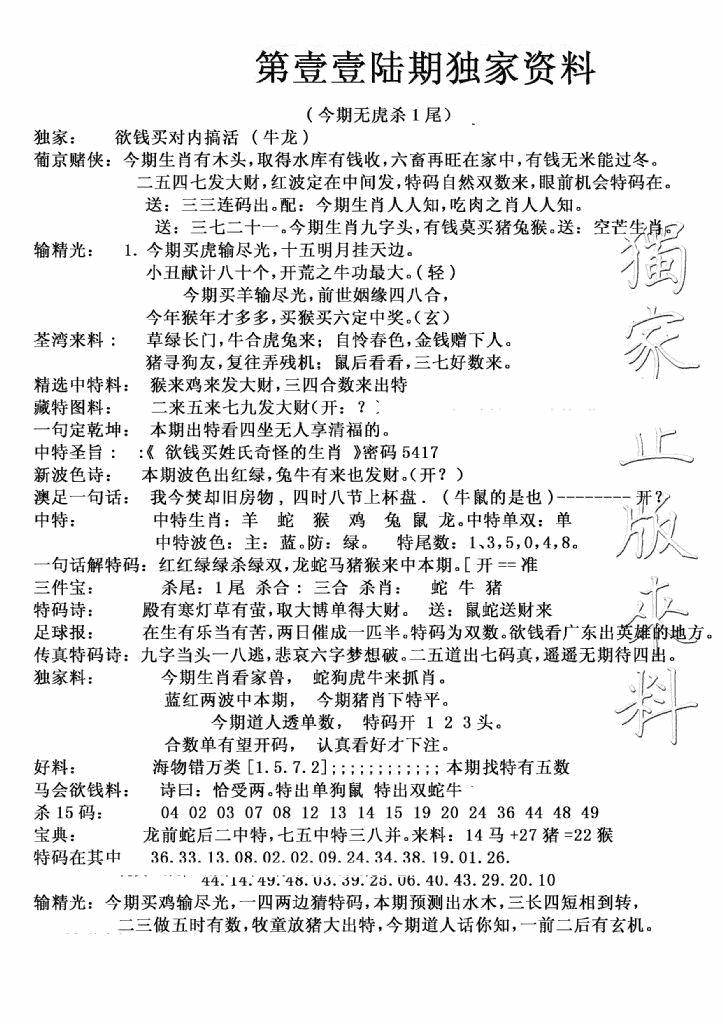 第壹壹陆期独家资料
(今期无虎杀1尾)
独家： 欲钱买对内搞活 (牛龙)
葡京赌侠：今期生肖有木头,取得水库有钱收,六畜再旺在家中,有钱无米能过冬。
二五四七发大财,红波定在中间发,特码自然双数来,眼前机会特码在。
送：三三连码出。配：今期生肖人人知,吃肉之肖人人知。
送：三七二十一。今期生肖九字头,有钱莫买猪兔猴。送：空芒生肖。
输精光： 1. 今期买虎输尽光,十五明月挂天边。
小丑献计八十个,开荒之牛功最大。(轻)
今期买羊输尽光,前世姻缘四八合,
今年猴年才多多,买猴买六定中奖。(玄)
荃湾来料： 草绿长门,牛合虎兔来；自怜春色,金钱赠下人。
猪寻狗友,复往弄残机；鼠后看看,三七好数来。
精选中特料： 猴来鸡来发大财,三四合数来出特
藏特图料： 二来五来七九发大财(开：？
一句定乾坤： 本期出特看四坐无人享清福的。
中特圣旨： :《 欲钱买姓氏奇怪的生肖 》密码5417
新波色诗： 本期波色出红绿,兔牛有来也发财。(开？)
澳足一句话： 我今焚却旧房物，四时八节上杯盘．(牛鼠的是也)--------开？
中特： 中特生肖：羊 蛇 猴 鸡 兔 鼠 龙。中特单双：单
中特波色：主：蓝。防：绿。 特尾数：1、3,5,0,4,8。
一句话解特码：红红绿绿杀绿双,龙蛇马猪猴来中本期。[开==准
三件宝： 杀尾：1尾 杀合：三合 杀肖： 蛇 牛 猪
特码诗： 殿有寒灯草有萤,取大博单得大财。 送：鼠蛇送财来
足球报： 在生有乐当有苦,两日催成一匹半。特码为双数。欲钱看广东出英雄的地方。
传真特码诗：九字当头一八逃,悲哀六字梦想破。二五道出七码真,遥遥无期待四出。
独家料： 今期生肖看家兽， 蛇狗虎牛来抓肖。
蓝红两波中本期， 今期猪肖下特平。
今期道人透单数， 特码开 1 2 3头。
合数单有望开码， 认真看好才下注。
好料： 海物错万类[1.5.7.2];;;;;;;;;;;;本期找特有五数
马会欲钱料： 诗曰：恰受两。特出单狗鼠 特出双蛇牛
杀15码： 04 02 03 07 08 12 13 14 15 19 20 24 36 44 48 49
宝典： 龙前蛇后二中特,七五中特三八并。来料：14马+27猪=22猴
特码在其中 36.33.13.08.02.02.09.24.34.38.19.01.26.
44.14.49.48.03.39.25.06.40.43.29.20.10
输精光：今期买鸡输尽光,一四两边猜特码,本期预测出水木,三长四短相到转,
二三做五时有数,牧童放猪大出特,今期道人话你知,一前二后有玄机。
獨家正版來料